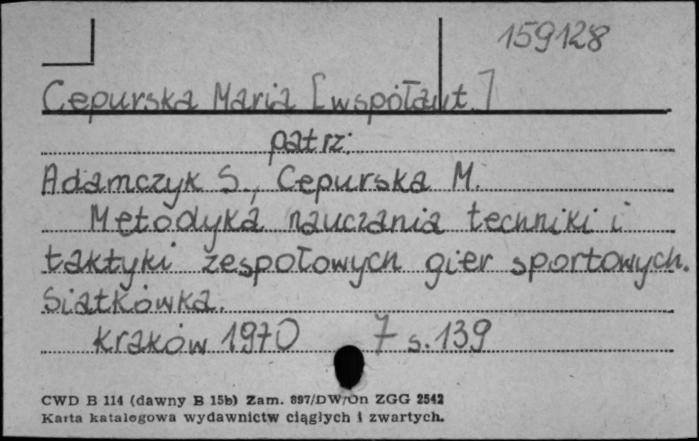 159128
Cepurska Maria [współaut.]
patrz:
Adamczyk S., Cepurska M.
Metodyka nauczania techniki i
taktyki zespołowych gier sportowych.
Siatkówka.
Kraków 1970 7 s. 139
CWD B 114 (dawny B 15b) Zam. 897/DW/On ZGG 2542
Karta katalogowa wydawnictw ciągłych i zwartych.